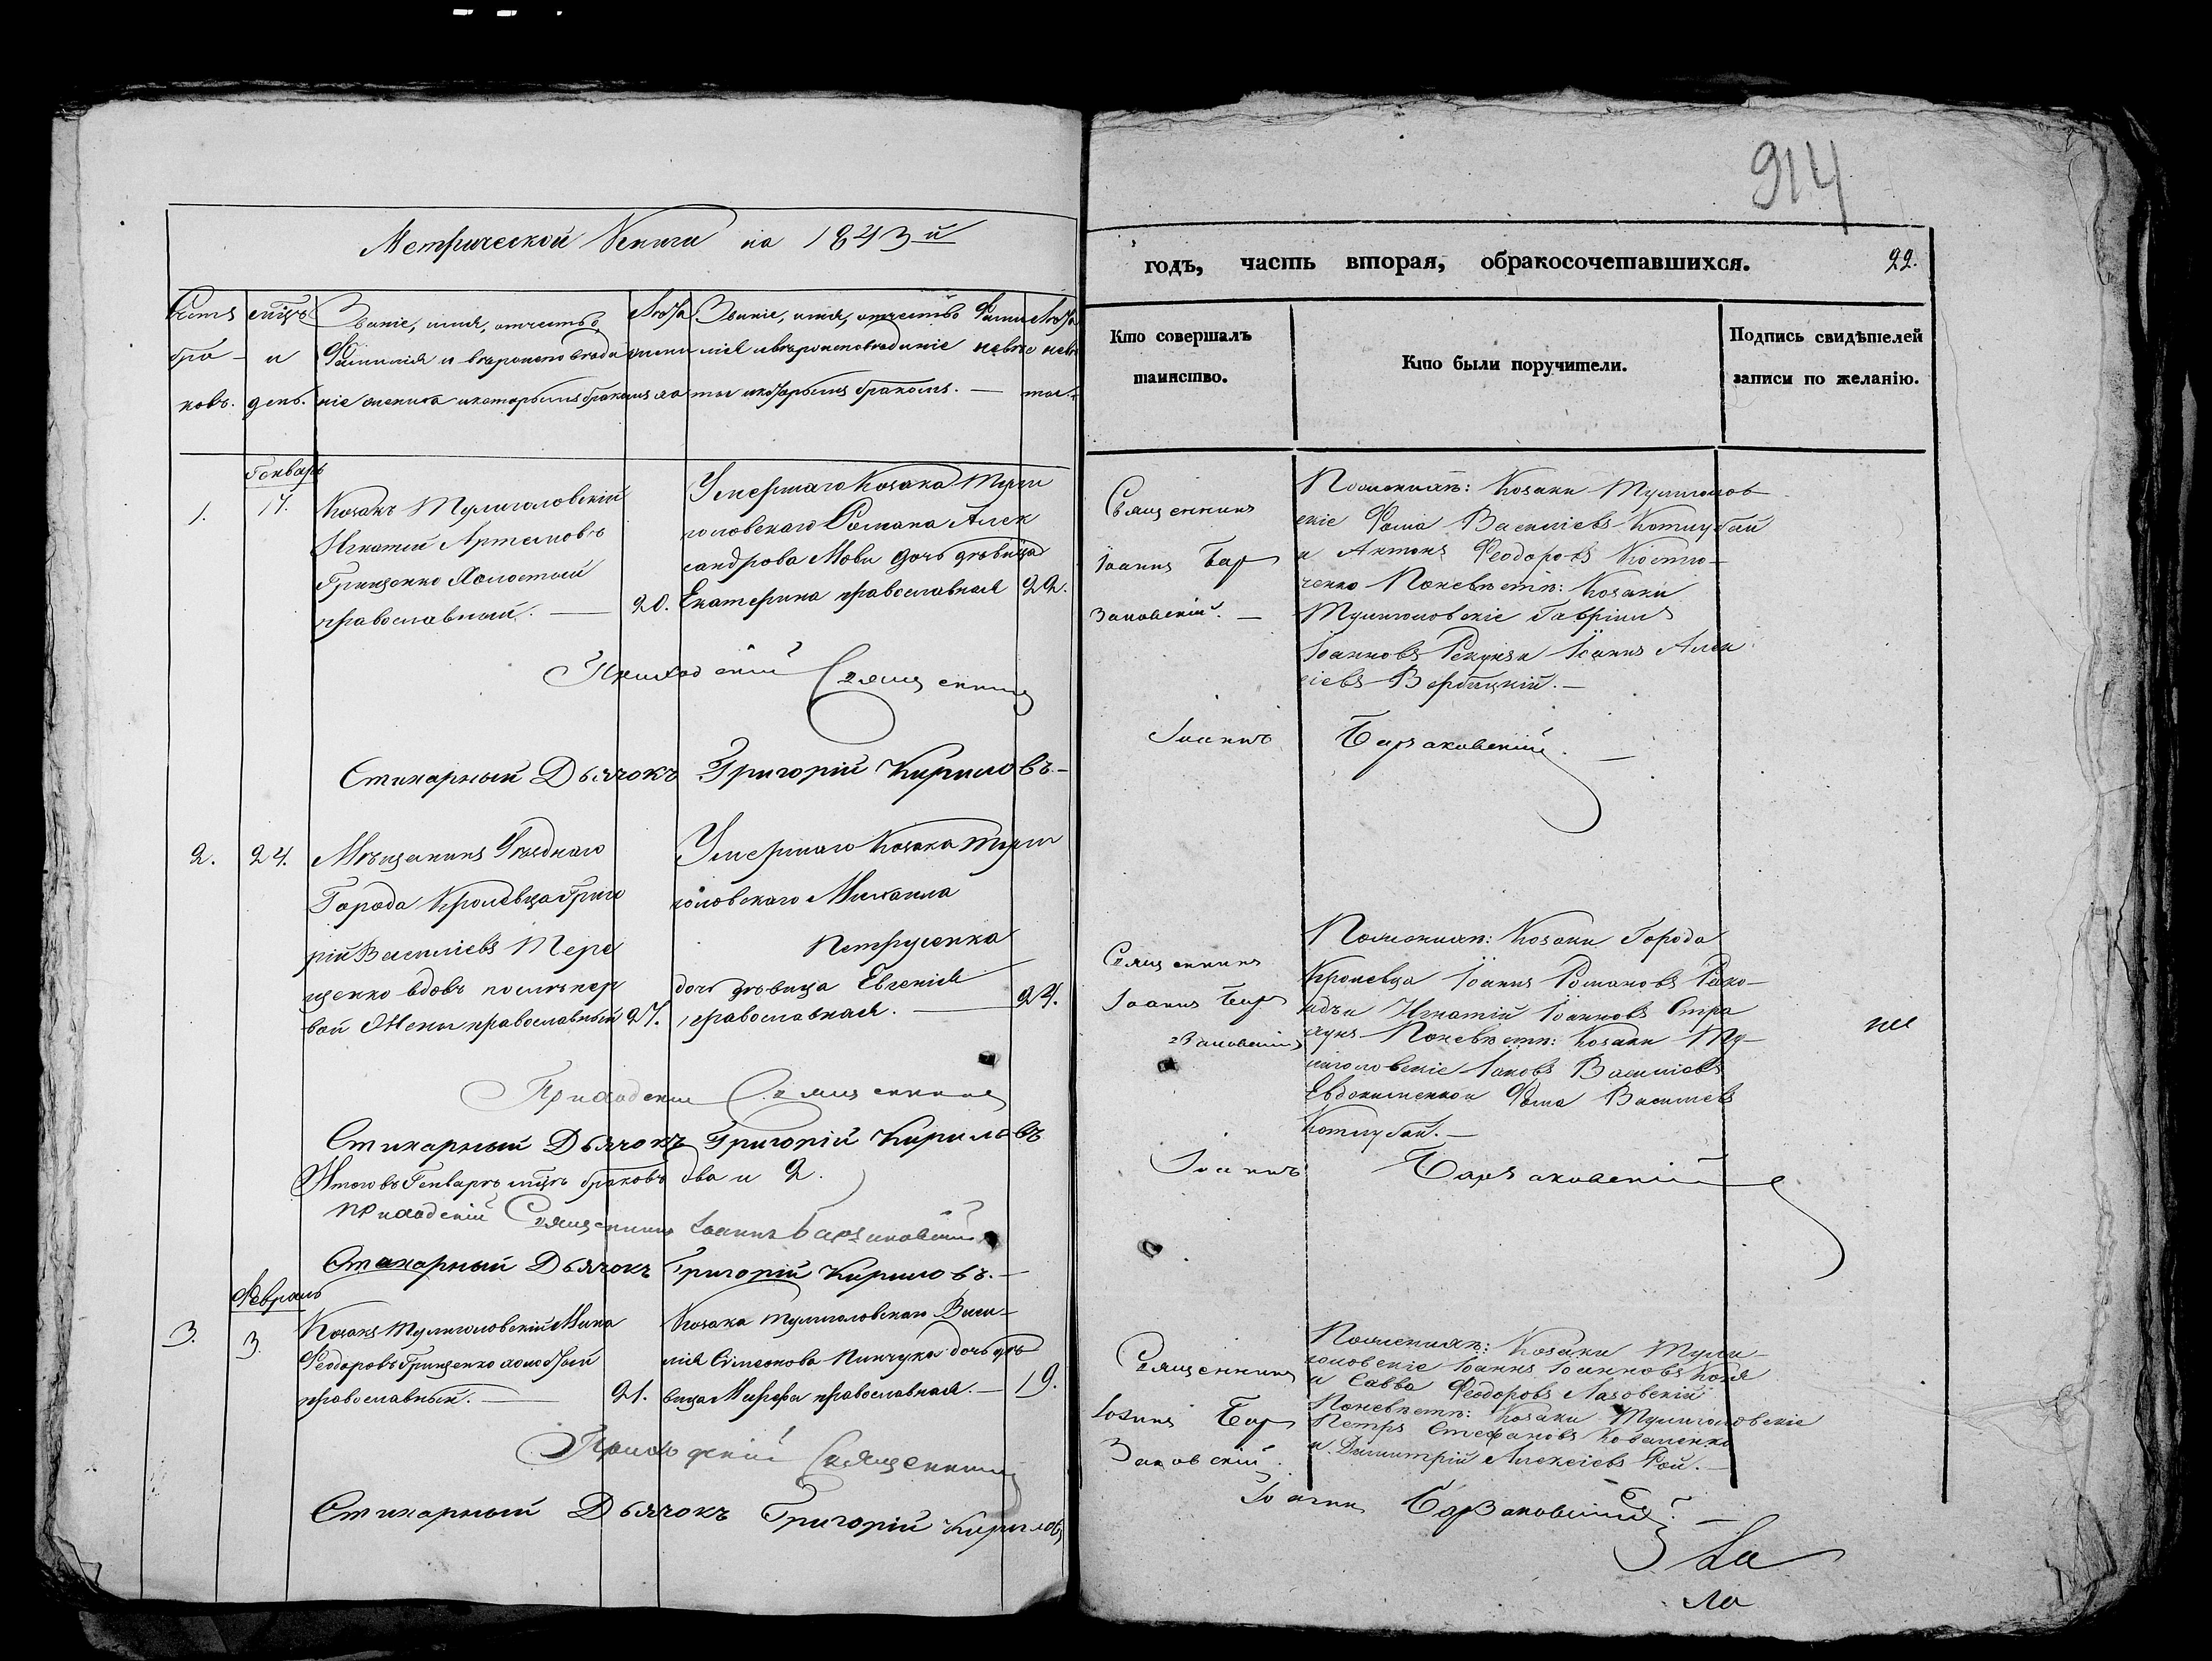 914
Метрической Книги на 1843й
годъ, часть вторая, обракосочетавшихся. 22.
Счетъ бра- ковъ.
мѣцъ и день.
Званіе, имя, отчество,
Фамилія и вѣроисповѣда
ніе жениха и которымъ бракомъ
Лѣта жениха
Званіе, имя, отчество Фами
лія и вѣроисповѣданіе невѣс
ты и которымъ бракомъ. —
Лѣта невѣс
ты.
Кто совершалъ
таинство.
Кто были поручители.
Подпись свидѣтелей
записи по желанію.
Генварь
1. 17.
Козакъ Тулиголовскій
Игнатій Артемовъ
Грищенко Холостый
православный. — 20.
Умершаго Козака Тули
головскаго Романа Алек
сандрова Мови дочь дѣвица
Екатерина православная 22.
Священникъ
Іоаннъ Бар
заковскій. —
По женихѣ: Козаки Тулиголов
скіе Фома Василіевъ Котлубай
и Антонъ Феодоровъ Костю-
ченко По невѣстѣ: Козаки
Тулиголовскіе Гавріилъ
Іоанновъ Рекунъ и Іоаннъ Алек
сіевъ Вербицкій. —
Приходскій Священникъ Іоаннъ Барзаковскій. —
Стихарный Дьячокъ Григорій Кириловъ. —
2. 24.
Мѣщанинъ Уѣзднаго
Города Кролевца Григо
рій Василіевъ Тере
щенко вдовъ послѣ пер
вой Жены православный 27.
Умершаго Козака Тули
головскаго Михаила
Петрусенка
дочь дѣвица Евгенія
православная. — 24.
Священникъ
Іоаннъ Бар
заковскій
По женихѣ: Козаки Города
Кролевца Іоаннъ Романовъ
Игнатій Іоанновъ
По невѣстѣ: Козаки Ту-
лиголовскіе Іаковъ Василіевъ
Евдокименко и Фома Василіевъ
Котлубай. —
Приходскій Священникъ Іоаннъ Барзаковскій
Стихарный Дьячокъ Григорій Кириловъ
Итого въ Генварѣ мцѣ браковъ два и 2.
Приходскій Священникъ Іоаннъ Барзаковскій
Стихарный Дьячокъ Григорій Кириловъ. —
Февраль
3. 3.
Козакъ Тулиголовскій Мина
Феодоровъ Грищенко холостый
православный. — 21.
Козака Тулиголовскаго Васи-
лія Симеонова Пинчука дочь дѣ
вица Марфа православная. — 19.
Священникъ
Іоаннъ Бар
заковскій.
По женихѣ: Козаки Тули-
головскіе Іоаннъ Іоанновъ Коня
и Савва Феодоровъ Лазовскій
По невѣстѣ: Козаки Тулиголовскіе
Петръ Стефановъ Коваленко
и Димитрій Алексіевъ Рой. —
Приходскій Священникъ Іоаннъ Барзаковскій. —
Стихарный Дьячокъ Григорій Кириловъ